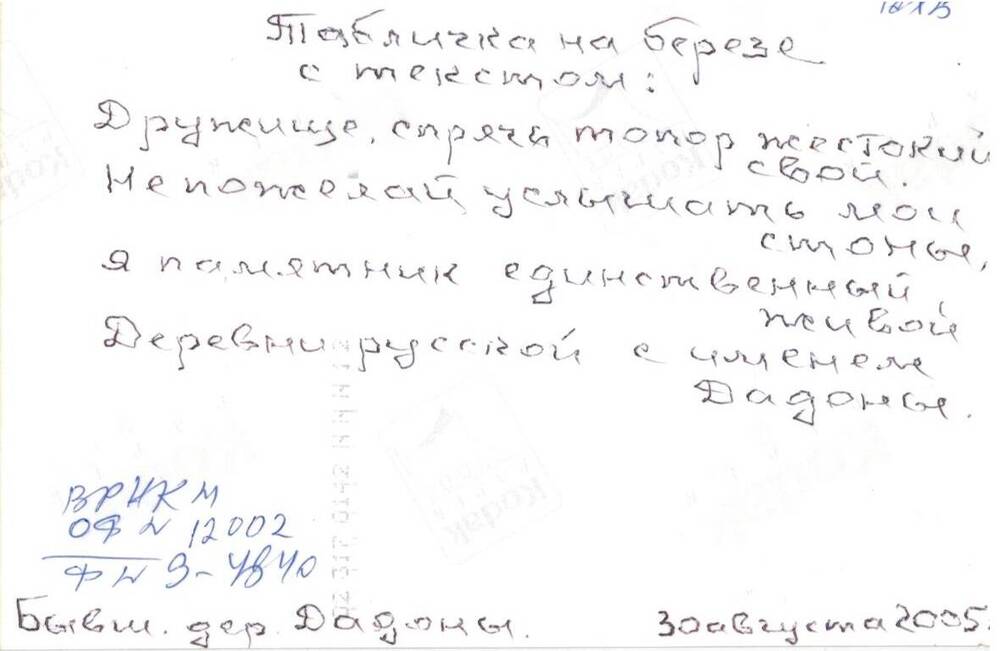 Табличка на березе
с текстом:
Дружище, спрячь топор жестокий
свой.
Не пожелай услышать мои
стоны,
Я памятник единственный,
живой
Деревни русской с именем
Дадоны.
ВРИКМ
ОФ № 12002
Ф № 9-4840
Бывш. дер. Дадоны.
30 августа 2005.